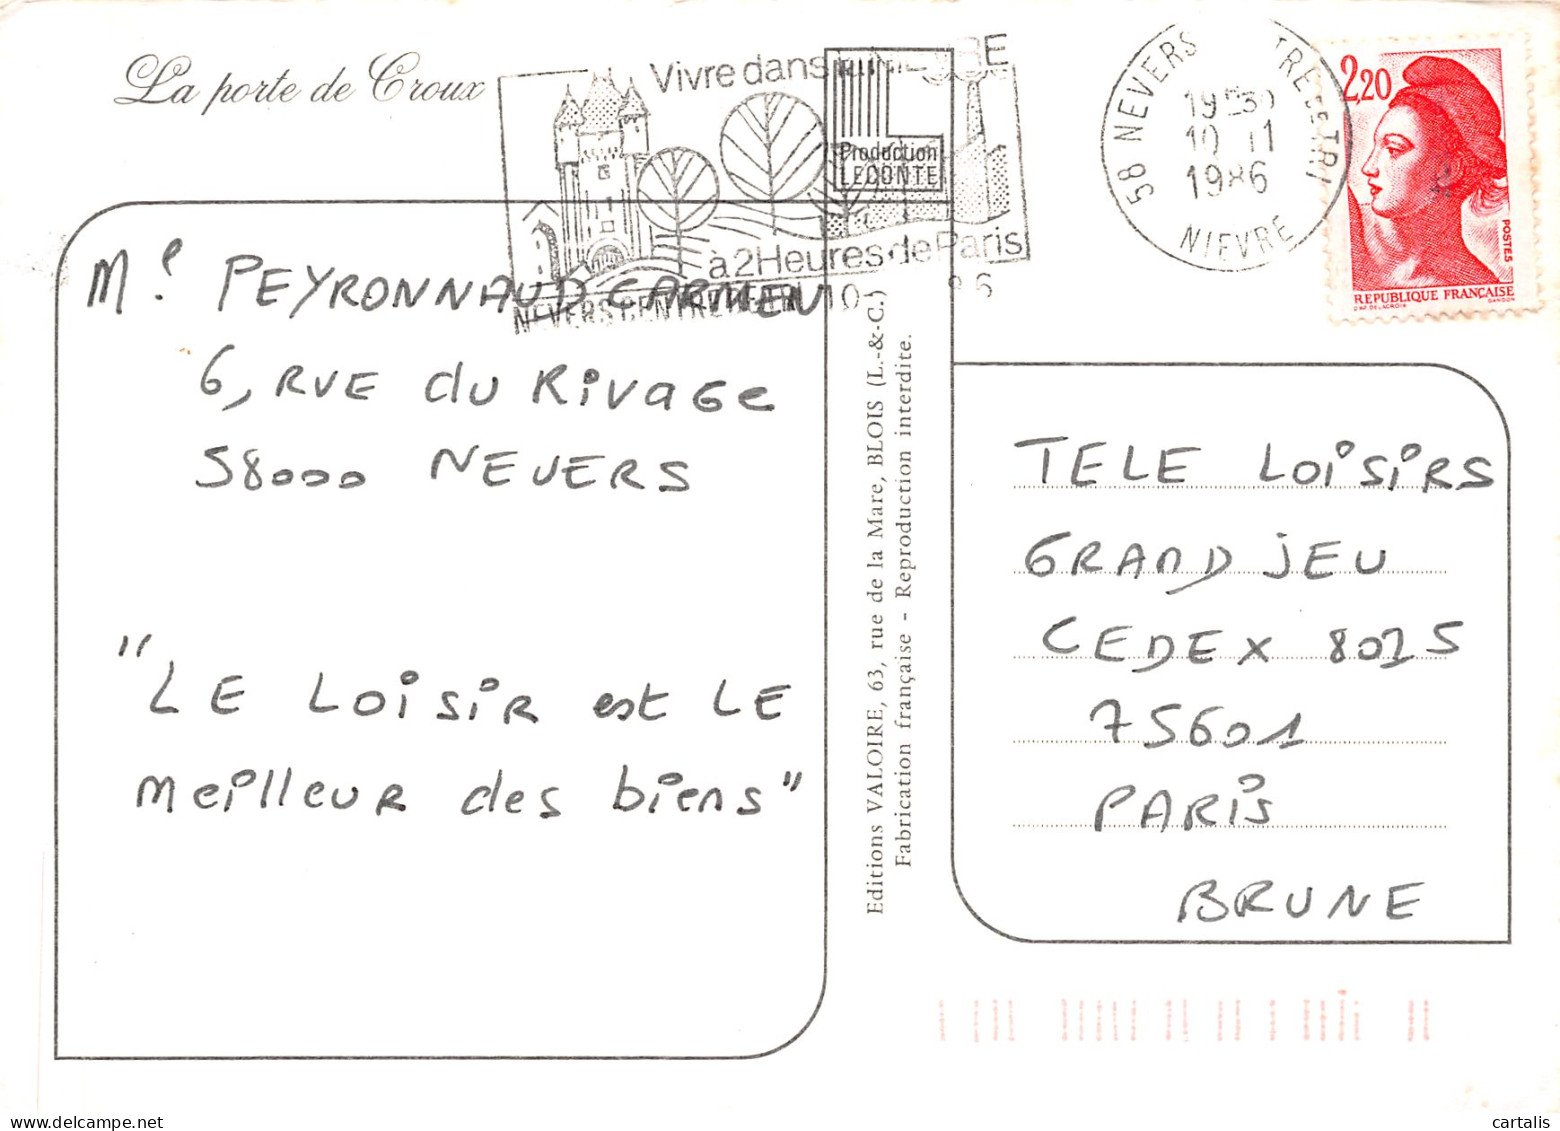 La porte de Croux
Vivre dans
Production
LECONTE
à 2 Heures de Paris
58 NEVERS
19 30
10 11
1986
NIEVRE
2,20
POSTES
REPUBLIQUE FRANÇAISE
Mᵉ. PEYRONNAUD CARMEN
6, RUE du Rivage
58000 NEVERS
"LE LOiSiR est LE
meilleur des biens"
Editions VALOIRE, 63, rue de la Mare, BLOIS (L.-&-C.)
Fabrication française - Reproduction interdite.
TELE LOiSiRS
GRAND JEU
CEDEX 8025
75601
PARiS
BRUNE
cartalis